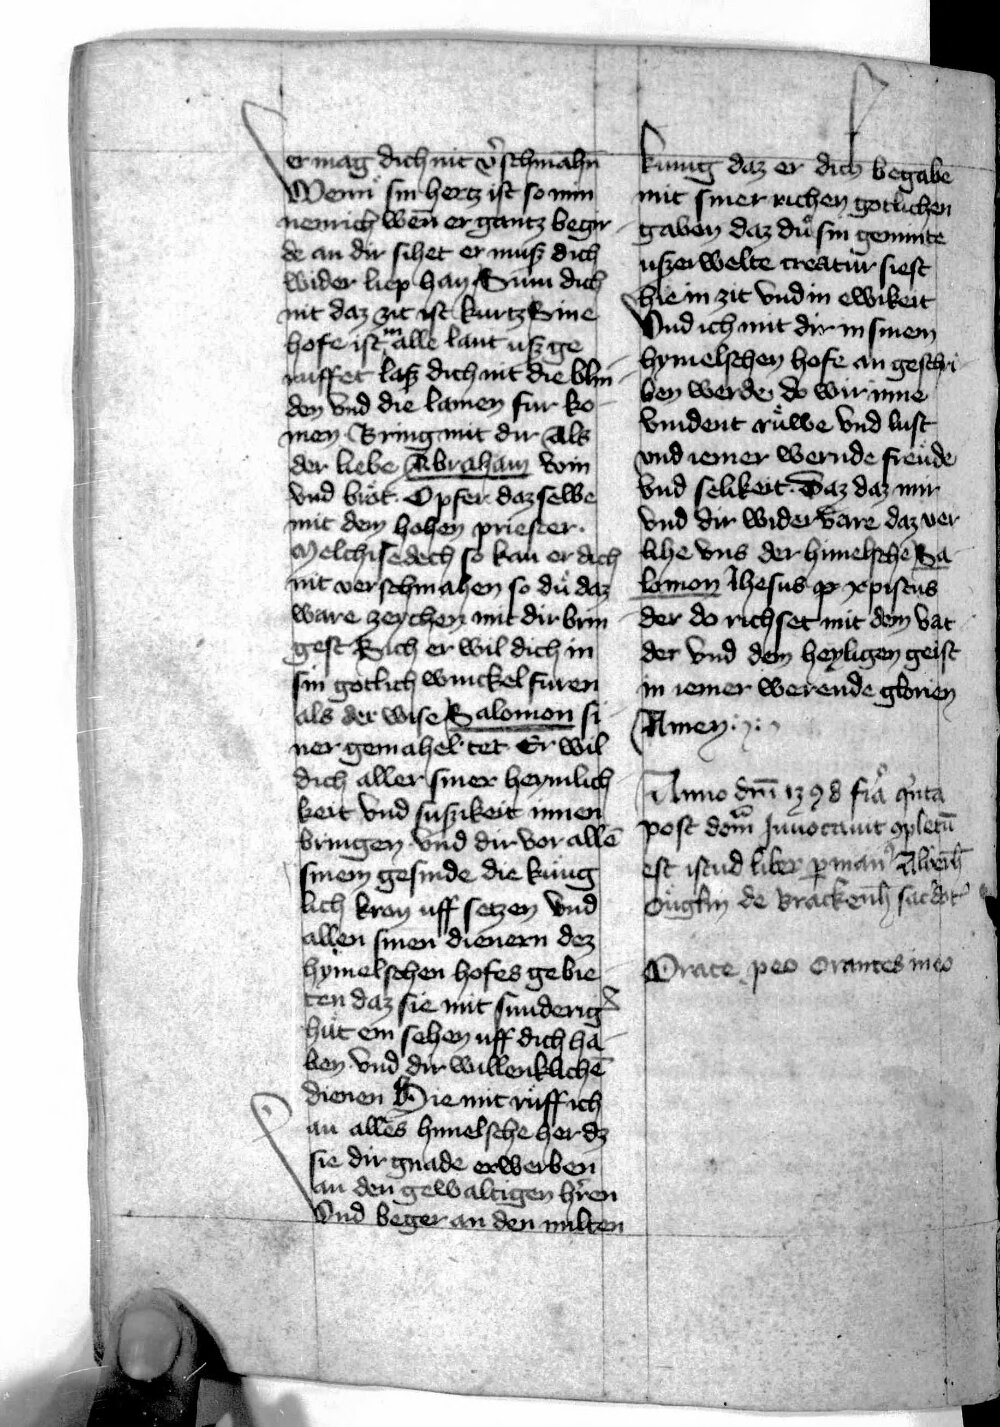 er mag dich nit v̾schmahn̄
Wenn sin hertz ist so min
nenrich wen̄ er gantz begir
de an dir sihet er muͤsz dich
wider liep han Sum dich
nit daz zit ist kurtz Sine
hofe ist in alle lant usz ge
ruffet lasz dich nit die blin
den vnd die lamen fur ko
men Bring mit dir Als
der liebe Abraham win
vnd brot. Opfer daz selbe
mit dem hohen priester.
Melchisedech so kan er dich
nit verschmahen so duͤ daz
ware zeychen mit dir brin
gest Sich er wil dich in
sin gotlich winckel furen
als der wise Salomon si
ner gemahel tet Er wil
dich aller siner heymlich
keit vnd suszikeit innen
bringen vnd dir vor allē
sinem gesinde die kuͤng
lich kron uff setzen vnd
allen sinen dienern dez
hymelschen hofes gebie
ten daz sie mit sunderig̾
huͤt ein sehen uff dich ha
ben vnd dir willenklichē
dienen Hie mit ruͤff ich
an alles himelsche her dz
sie dir gnade erwerben
an den gewaltigen hr̄en
Vnd beger an den milten
kunig daz er dich begabe
mit siner richen gotlichen
gaben daz duͤ sin geminte
uszerwelte creatur siest
hie in zit vnd in ewikeit
Vnd ich mit dir in sinem
hymelschen hofe an geschri
ben werde do wir inne
vindent ruͤwe vnd lust
vnd iemer wernde freude
vnd selikeit. Daz daz mir
vnd dir widervare daz ver
lihe vns der himelsche Sa
lomon Jhesus xpistus
der do richset mit dem vat
der vnd dem heyligen geist
in iemer werende glorien
Amen
Anno dn̄i 1398 fia qͥnta
post dom̄ Invocavit 9pletū
est istud liber p man9 Alber
de Brackenh sacdot
Orate peo orantes meo